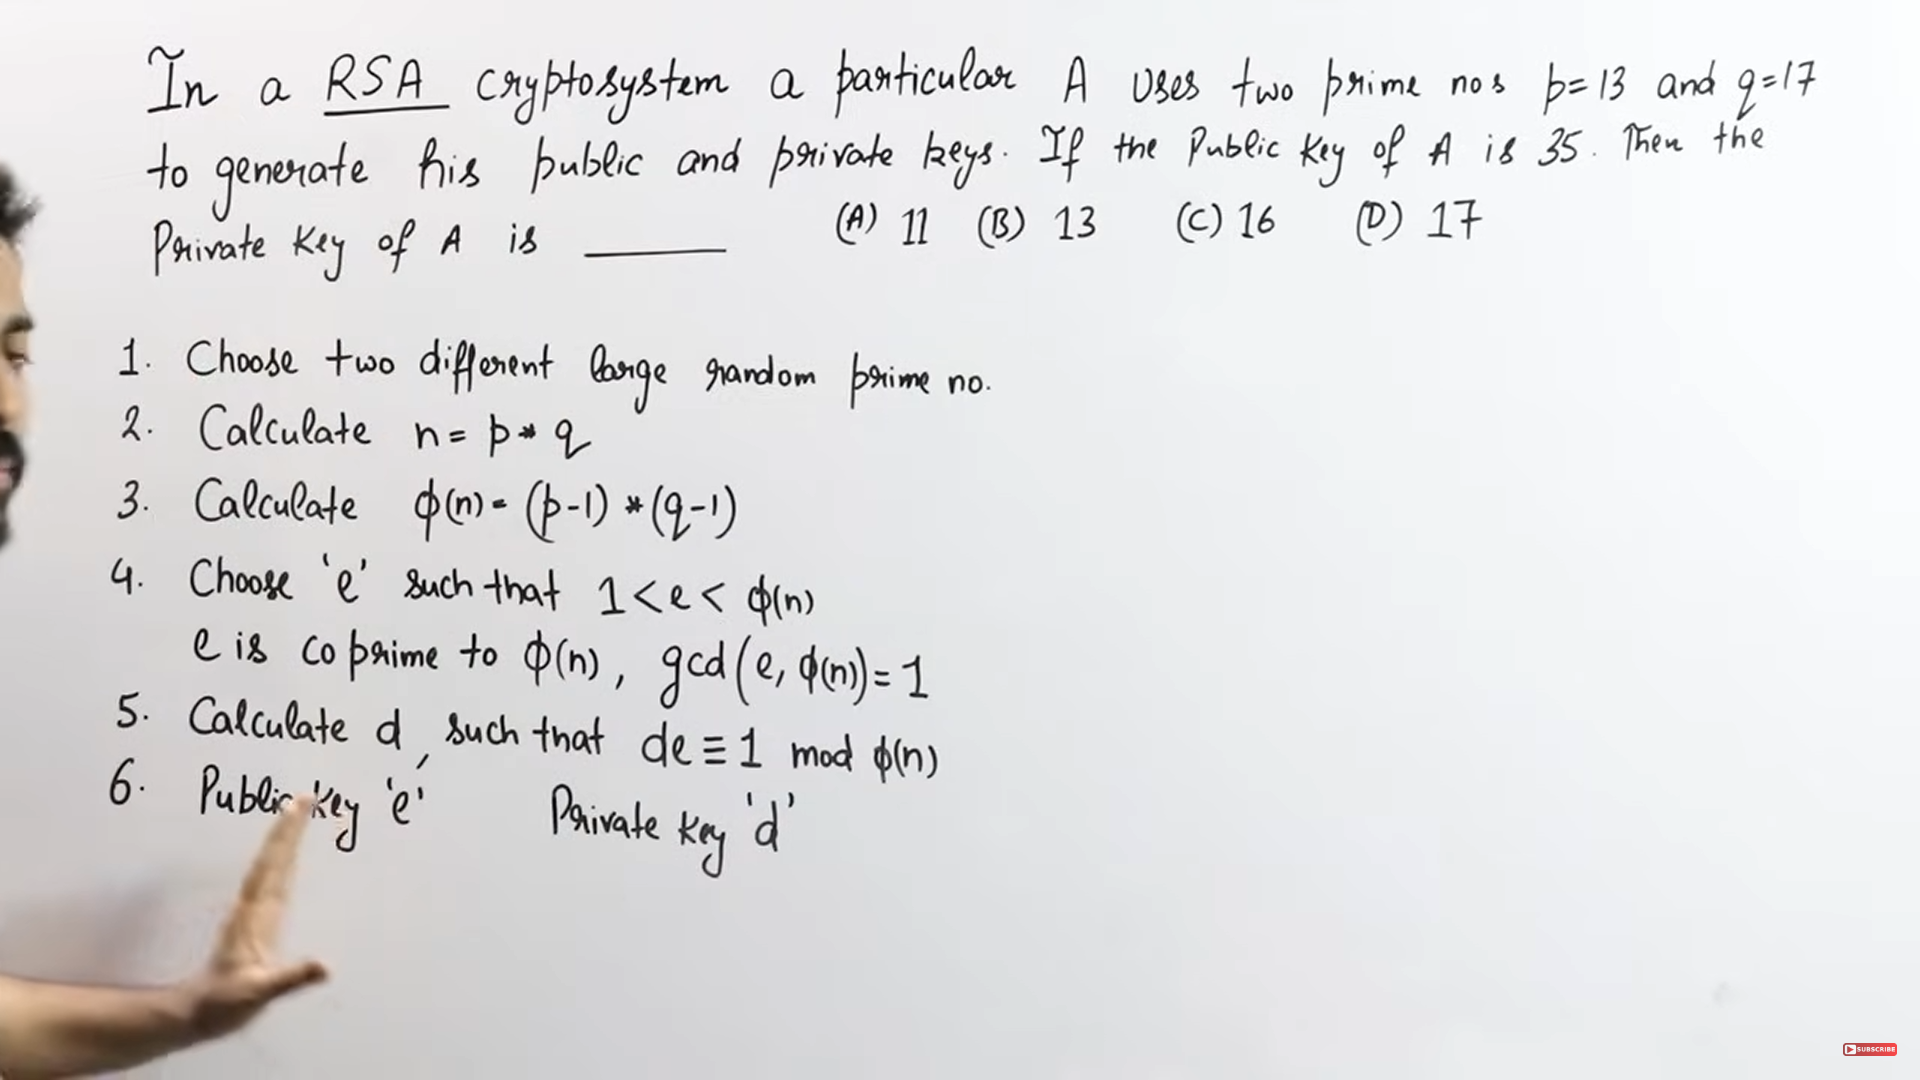 In a RSA cryptosystem a particular A uses two prime nos p=13 and q=17
to generate his public and private keys. If the Public Key of A is 35. Then the
Private Key of A is ______ (A) 11 (B) 13 (C) 16 (D) 17
1. Choose two different large random prime no.
2. Calculate n = p * q
3. Calculate ϕ(n) = (p-1) * (q-1)
4. Choose 'e' such that 1 < e < ϕ(n)
e is co prime to ϕ(n), gcd(e, ϕ(n)) = 1
5. Calculate d, such that de ≡ 1 mod ϕ(n)
6. Public key 'e' Private key 'd'
SUBSCRIBE